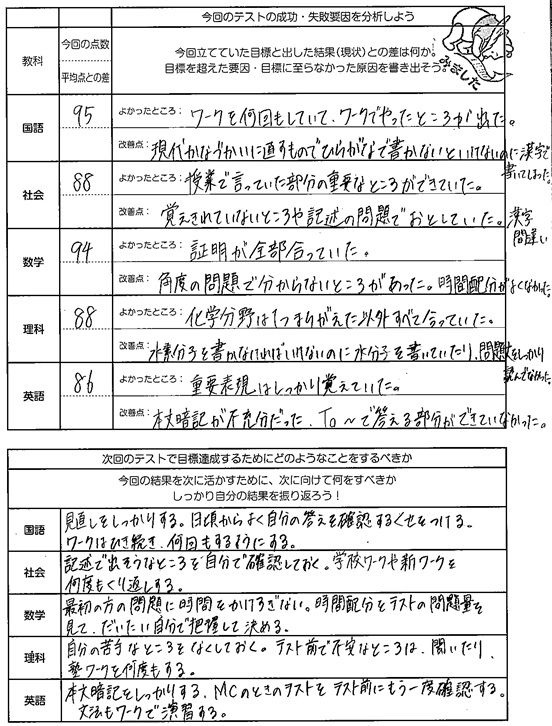 今回のテストの成功・失敗要因を分析しよう
教科
今回の点数
平均点との差
今回立てていた目標と出した結果(現状)との差は何か。
目標を超えた要因・目標に至らなかった原因を書き出そう。
みました
国語
95
よかったところ: ワークを何回もしていて、ワークでやったところが出た。
改善点: 現代かなづかいに直すものでひらがなで書かないといけないのに漢字で
書いてしまった。
社会
88
よかったところ: 授業で言っていた部分の重要なところができていた。
改善点: 覚えきれていないところや記述の問題でおとしていた。漢字
間違い
数学
94
よかったところ: 証明が全部合っていた。
改善点: 角度の問題で分からないところがあった。時間配分がよくなかった。
理科
88
よかったところ: 化学分野は1つまちがえた以外すべて合っていた。
改善点: 水素分子を書かなければいけないのに水分子を書いていたり、問題文をしっかり
読んでなかった。
英語
86
よかったところ: 重要表現はしっかり覚えていた。
改善点: 本文暗記が不充分だった、To 〜で答える部分ができていなかった。
次回のテストで目標達成するためにどのようなことをするべきか
今回の結果を次に活かすために、次に向けて何をすべきか
しっかり自分の結果を振り返ろう!
国語
見直しをしっかりする。日頃からよく自分の答えを確認するくせをつける。
ワークはひき続き、何回もするようにする。
社会
記述で出そうなところを自分で確認しておく。学校ワークや新ワークを
何度もくり返しする。
数学
最初の方の問題に時間をかけすぎない。時間配分をテストの問題量を
見て、だいたい自分で把握して決める。
理科
自分の苦手なところをなくしておく。テスト前で不安なところは、聞いたり、
塾ワークを何度もする。
英語
本文暗記をしっかりする、MCのときのテストをテスト前にもう一度確認する。
文法もワークで演習する。